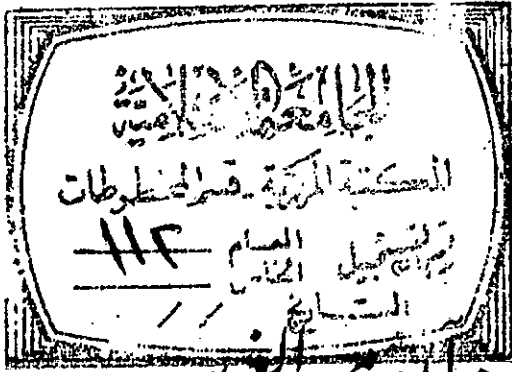 الجامعة الإسلامية
المكتبة المركزية - قسم المخطوطات
رقم التسجيل العام ١١٢
الخاص
التاريخ / /